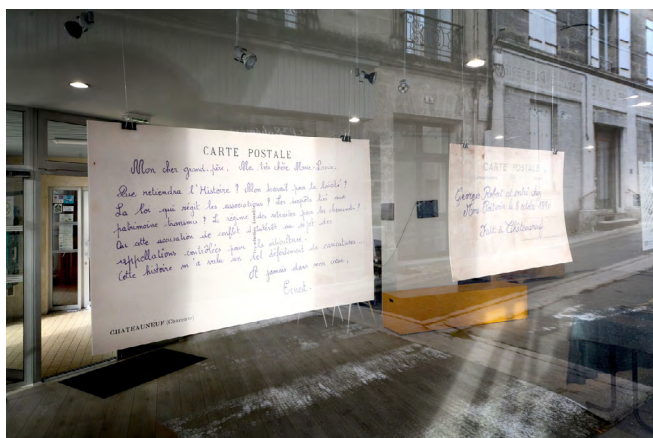 CARTE POSTALE
Mon cher grand-père, Ma très chère Marie-Louise,
Que retiendra l'Histoire ? Mon travail pour la laïcité ?
La loi qui régit les associations ? Les impôts liés aux
patrimoine ? Le régime des retraites pour les cheminots ?
Ou cette accusation de conflit d'intérêt au sujet des
appellations contrôlées pour la viticulture.
Cette histoire m'a valu un tel déferlement de caricatures.
A jamais dans mon cœur,
Ernest.
CHATEAUNEUF (Charente)
CARTE POSTALE
Georges Robert est entré chez
octobre
Fait à Châteauneuf